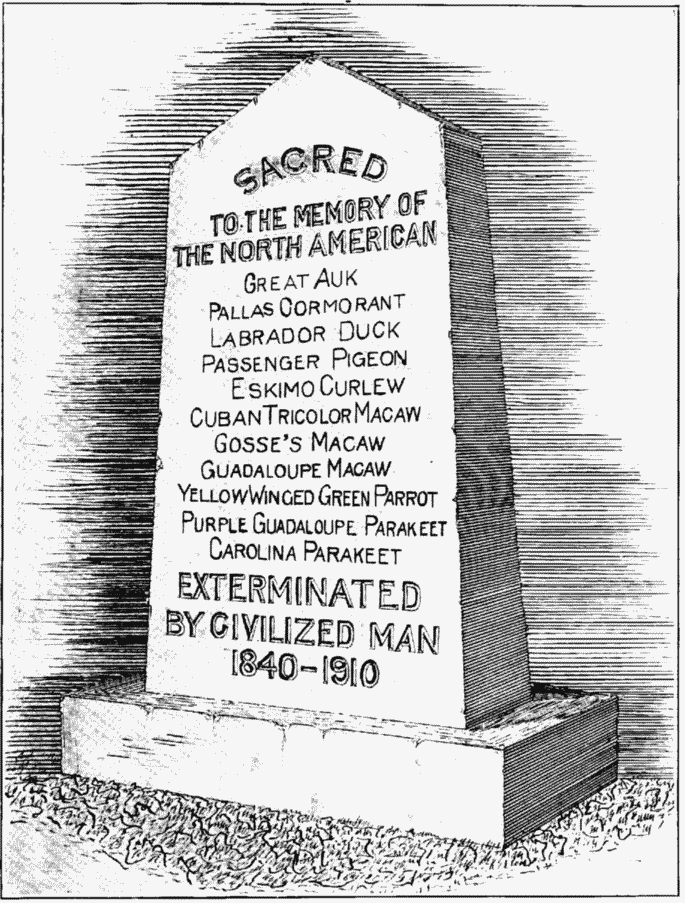 SACRED
TO THE MEMORY OF
THE NORTH AMERICAN
GREAT AUK
PALLAS CORMORANT
LABRADOR DUCK
PASSENGER PIGEON
ESKIMO CURLEW
CUBAN TRICOLOR MACAW
GOSSE'S MACAW
GUADALOUPE MACAW
YELLOW WINGED GREEN PARROT
PURPLE GUADALOUPE PARAKEET
CAROLINA PARAKEET
EXTERMINATED
BY CIVILIZED MAN
1840-1910